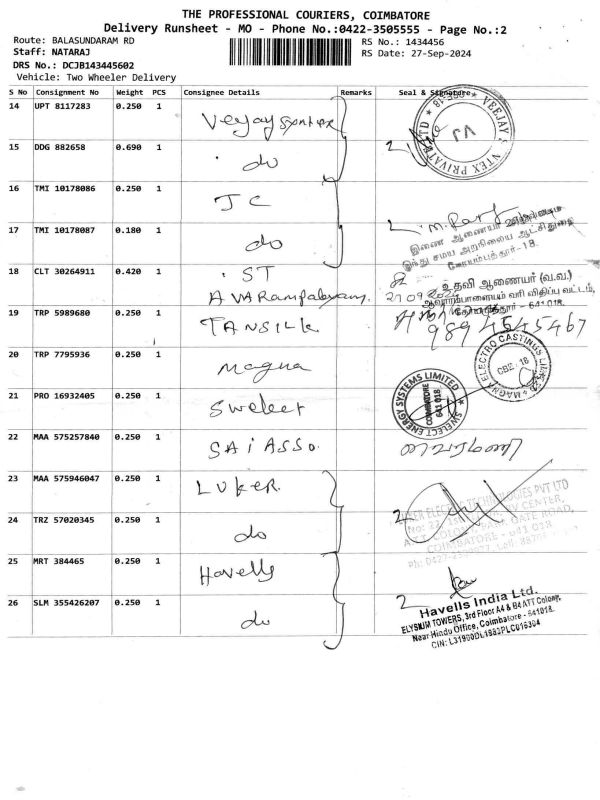 THE PROFESSIONAL COURIERS, COIMBATORE
Delivery Runsheet - MO - Phone No.:0422-3505555 - Page No.:2
Route: BALASUNDARAM RD
RS No.: 1434456
Staff: NATARAJ
RS Date: 27-Sep-2024
DRS No.: DCJB143445602
Vehicle: Two Wheeler Delivery
S No Consignment No Weight PCS Consignee Details Remarks Seal & Signature
14 UPT 8117283 0.250 1 Veejay Syntex
15 DDG 882658 0.690 1 do 2
VEEJAY SYNTEX PRIVATE LTD
16 TMI 10178086 0.250 1 JC
17 TMI 10178087 0.180 1 do 2
இணை ஆணையர்
இந்து சமய அறநிலைய ஆட்சித்துறை
கோயம்பத்தூர்-18.
18 CLT 30264911 0.420 1 ST
AVARampalayam.
உதவி ஆணையர் (வ.வ.)
ஆவாரம்பாளையம் வரி விதிப்பு வட்டம்,
641 018.
19 TRP 5989680 0.250 1 TANSILK
9894545467
20 TRP 7795936 0.250 1 Magna
MAGNA ELECTRO CASTINGS LIMITED
CBE-18
21 PRO 16932405 0.250 1 Swelect
SWELECT ENERGY SYSTEMS LIMITED
COIMBATORE
641 018
22 MAA 575257840 0.250 1 SAI ASSO.
23 MAA 575946047 0.250 1 LUKER.
24 TRZ 57020345 0.250 1 do 2
TECHNOLOGIES PVT LTD
CENTER,
GATE ROAD,
COIMBATORE - 641 018
25 MRT 384465 0.250 1 Havells
26 SLM 355426207 0.250 1 do 2
Havells India Ltd.
ELYSIUM TOWERS, 3rd Floor A4 & B4 ATT Colony,
Near Hindu Office, Coimbatore - 641018.
CIN: L31900DL1983PLC016304